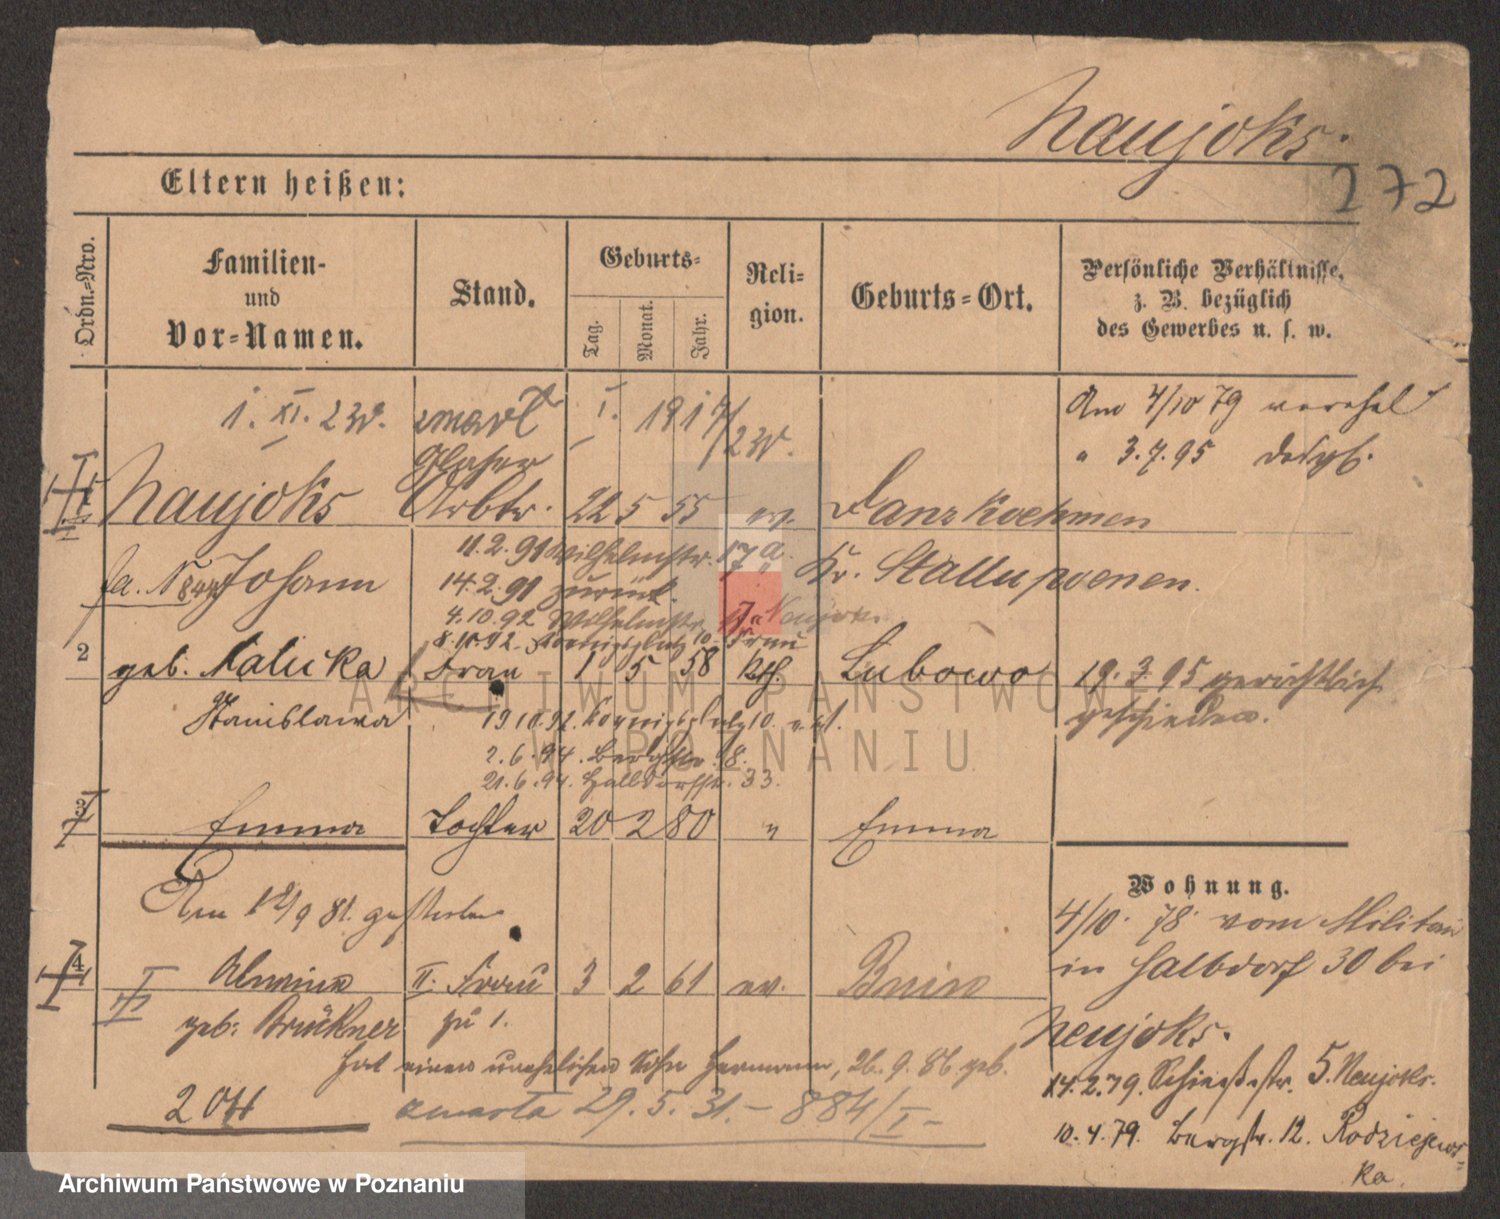 Naujoks.
272
Eltern heißen:
Ordn.-Nro.
Familien-
und
Vor-Namen.
Stand.
Geburts-
Tag.
Monat.
Jahr.
Reli-
gion.
Geburts-Ort.
Persönliche Verhältnisse,
z. B. bezüglich
des Gewerbes u. s. w.
1. XI. 23r. zmarł I. 1917/23r.
Am 4/10 79 verehel
" 3.7.95 desgl.
Glaser
1 Naujoks Arbtr. 22 5 55 ev. Danzkoehmen
11.2.91 Wilhelmstr. 17 a.
fa. N 844 Johann Kr. Stallupoenen.
14.2.91 zurück.
4.10.92 Wilhelmstr. 17a Naujoks.
8.10.92 Koenigsplatz 10 Frau
2 geb. Kalicka Frau 1 5 58 kth. Lubowo
19.3.95 gerichtlich
geschieden.
Stanislawa 19.10.92. Koenigsplatz 10.
2.6.94. Bergstr. 8.
21.6.94. Halbdorfstr. 33.
3 Emma Tochter 20 2 80 " Emma
Am 12/9 81. gestorben
4 Alwine II. Frau 3 2 61 ev. Bnin
geb: Brückner zu 1.
Hat einen unehelichen Sohn Hermann, 26.9.86 geb.
2 Off
zmarła 29.5.31.- 884/I-
Wohnung.
4/10. 78. vom Militair
in Halbdorf 30 bei
Neujoks.
14.2.79. Schießstr. 5. Neujoks.
10.4.79. Bergstr. 12. Rodziejews-
ka.
ARCHIWUM PAŃSTWOWE
W POZNANIU
Archiwum Państwowe w Poznaniu